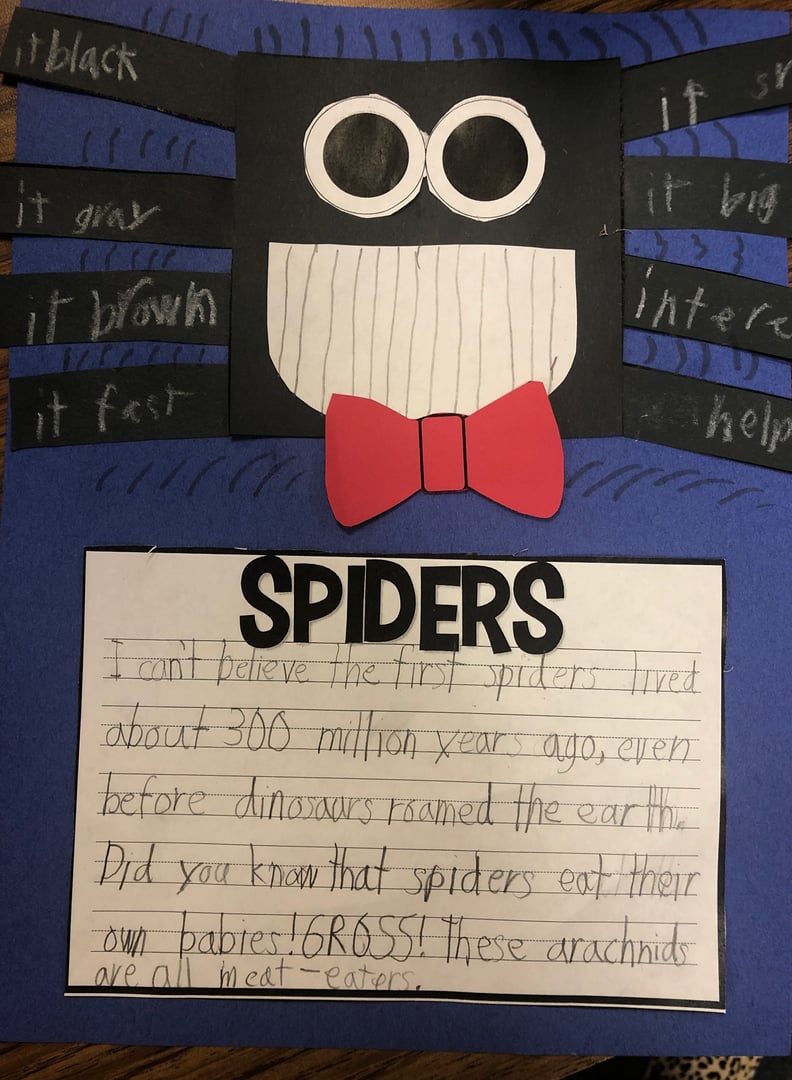 it black
it gray
it brown
it fast
it
it big
intere
help
SPIDERS
I can't believe the first spiders lived
about 300 million years ago, even
before dinosaurs roamed the earth.
Did you know that spiders eat their
own babies! GROSS! These arachnids
are all meat-eaters.